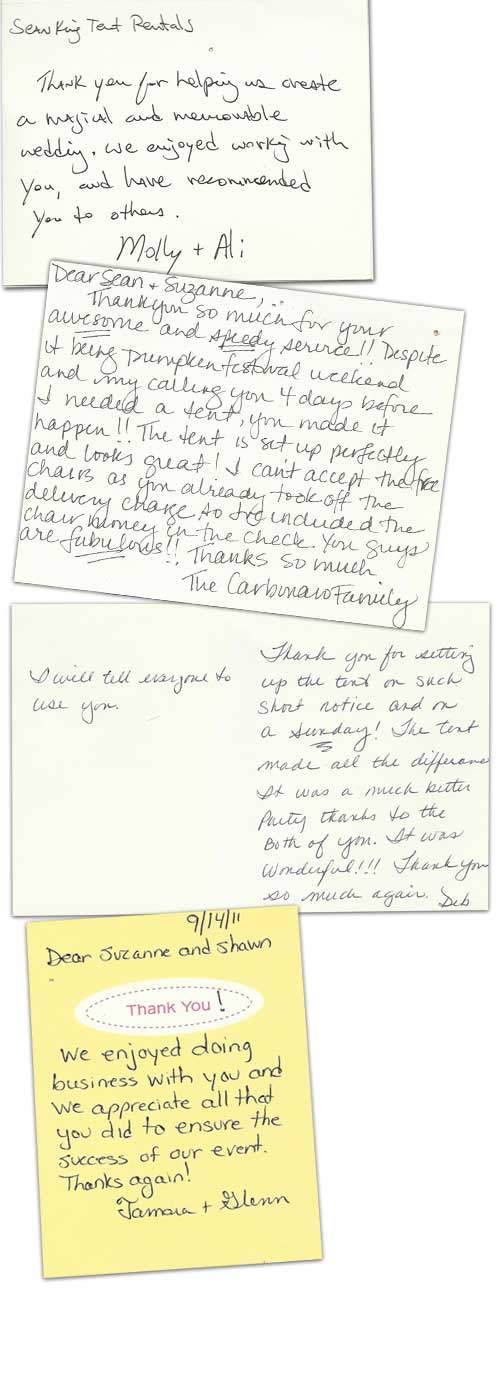 Sean King Tent Rentals
Thank you for helping us create
a magical and memorable
wedding. We enjoyed working with
you, and have recommended
you to others.
Molly + Ali
Dear Sean + Suzanne,
Thank you so much for your
awesome and speedy service!! Despite
it being Pumpkenfestival weekend
and my calling you 4 days before
I needed a tent, you made it
happen!! The tent is set up perfectly
and looks great! I can't accept the free
chairs as you already took off the
delivery charge so I included the
chair money in the check. You guys
are fabulous!! Thanks so much
The Carbonaro Family
I will tell everyone to
use you.
Thank you for setting
up the tent on such
short notice and on
a Sunday! The tent
made all the difference
It was a much better
Party thanks to the
Both of you. It was
Wonderful!!! Thank you
so much again. Deb
9/14/11
Dear Suzanne and Shawn
Thank You!
We enjoyed doing
business with you and
we appreciate all that
you did to ensure the
success of our event.
Thanks again!
Tamara + Glenn